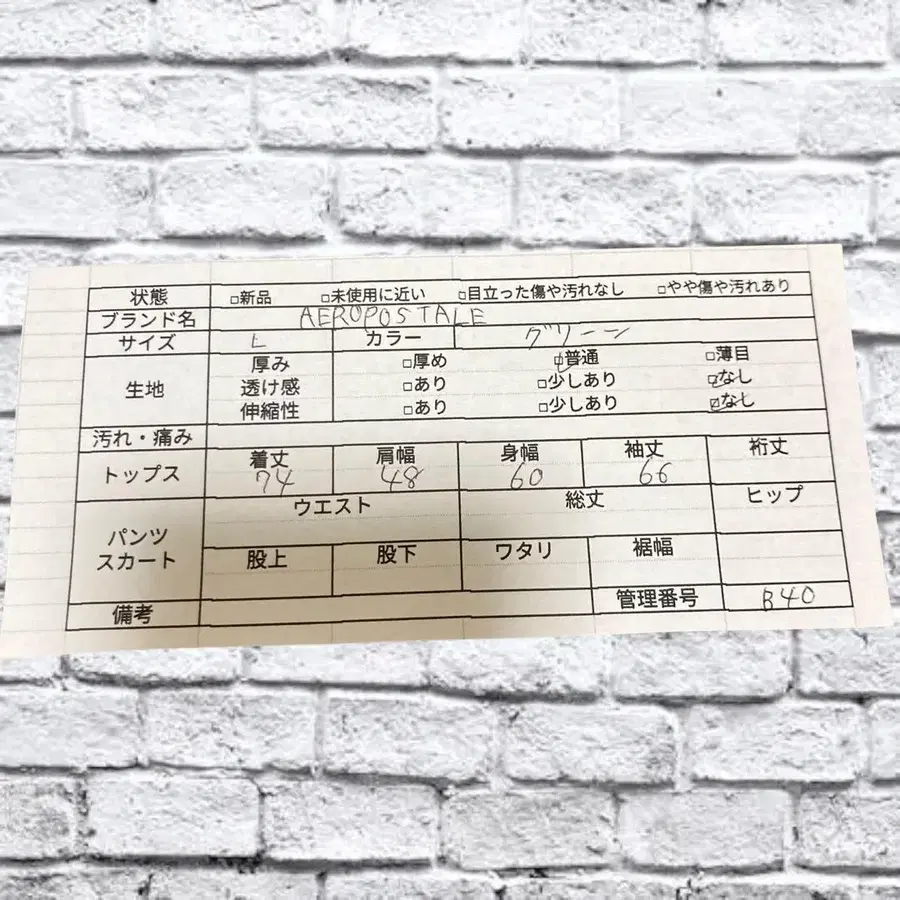 状態 □新品 □未使用に近い □目立った傷や汚れなし □やや傷や汚れあり
ブランド名 AEROPOSTALE
サイズ L カラー グリーン
生地 厚み □厚め ☑普通 □薄目
透け感 □あり □少しあり ☑なし
伸縮性 □あり □少しあり ☑なし
汚れ・痛み
トップス 着丈 肩幅 身幅 袖丈 裄丈
74 48 60 66
パンツ スカート ウエスト 総丈 ヒップ
股上 股下 ワタリ 裾幅
備考 管理番号 B40